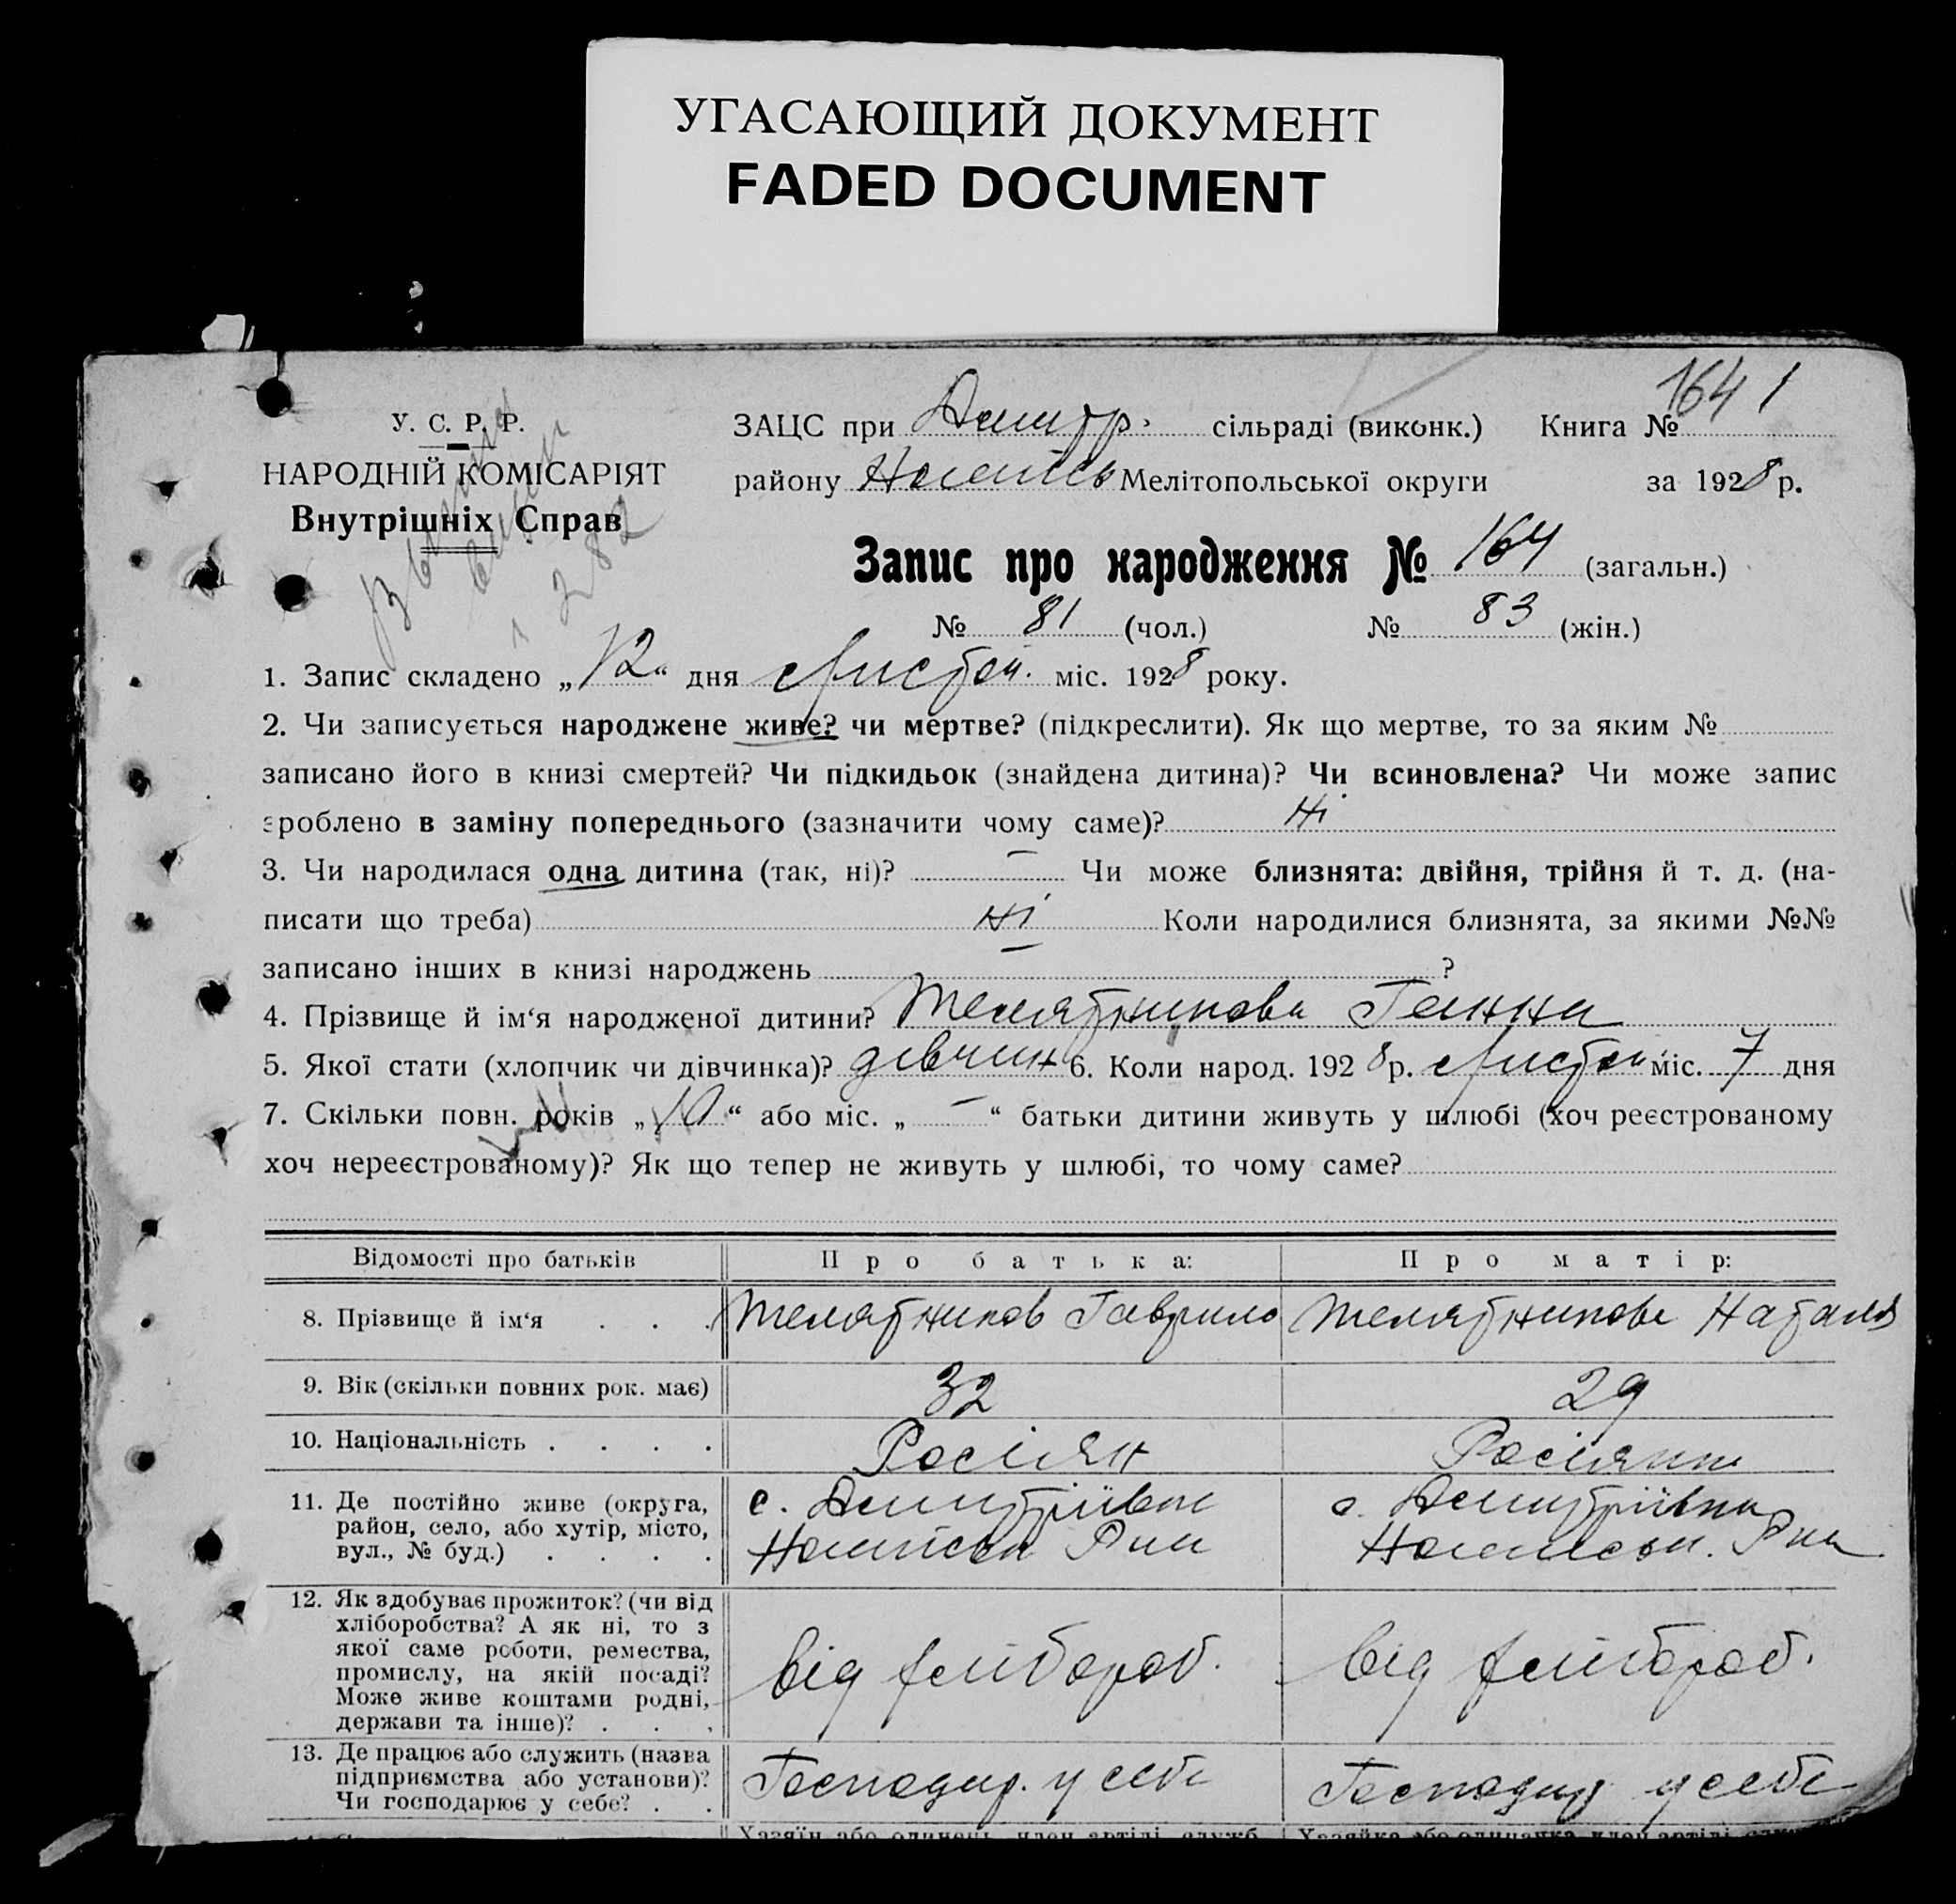 УГАСАЮЩИЙ ДОКУМЕНТ
FADED DOCUMENT
164 1
У. С. Р. Р.
НАРОДНІЙ КОМІСАРІЯТ
Внутрішніх Справ
282
ЗАЦС при Дмитр. сільраді (виконк.) Книга №
району Мелітопольської округи за 1928 р.
Запис про народження № 164 (загальн.)
№ 81 (чол.) № 83 (жін.)
1. Запис складено „12“ дня Листоп. міс. 1928 року.
2. Чи записується народжене живе? чи мертве? (підкреслити). Як що мертве, то за яким №
записано його в книзі смертей? Чи підкидьок (знайдена дитина)? Чи всиновлена? Чи може запис
зроблено в заміну попереднього (зазначити чому саме)? Ні
3. Чи народилася одна дитина (так, ні)? — Чи може близнята: двійня, трійня й т. д. (на-
писати що треба) Ні Коли народилися близнята, за якими №№
записано інших в книзі народжень — ?
4. Прізвище й ім‘я народженої дитини? Телятникова Ганна
5. Якої стати (хлопчик чи дівчинка)? дівчин 6. Коли народ. 1928 р. Листоп міс. 7 дня
7. Скільки повн. років „10“ або міс. „ — “ батьки дитини живуть у шлюбі (хоч реєстрованому
хоч нереєстрованому)? Як що тепер не живуть у шлюбі, то чому саме?
Відомості про батьків Про батька: Про матір:
8. Прізвище й ім‘я . . . Телятников Гаврило Телятникова Наталя
9. Вік (скільки повних рок. має) 32 29
10. Національність . . . . Росіян Росіянка
11. Де постійно живе (округа,
район, село, або хутір, місто,
вул., № буд.) . . . .
с. Дмитрівка
Рна
с. Дмитрівка
Рна
12. Як здобуває прожиток? (чи від
хліборобства? А як ні, то з
якої саме роботи, ремества,
промислу, на якій посаді?
Може живе коштами родні,
держави та інше)? . . .
від хлібороб.
від хлібороб.
13. Де працює або служить (назва
підприємства або установи)?
Чи господарює у себе? . .
Господар. у себе
Господар у себе
Хазяїн або одинець, член артілі, служб. Хазяйка або одиначка член артілі